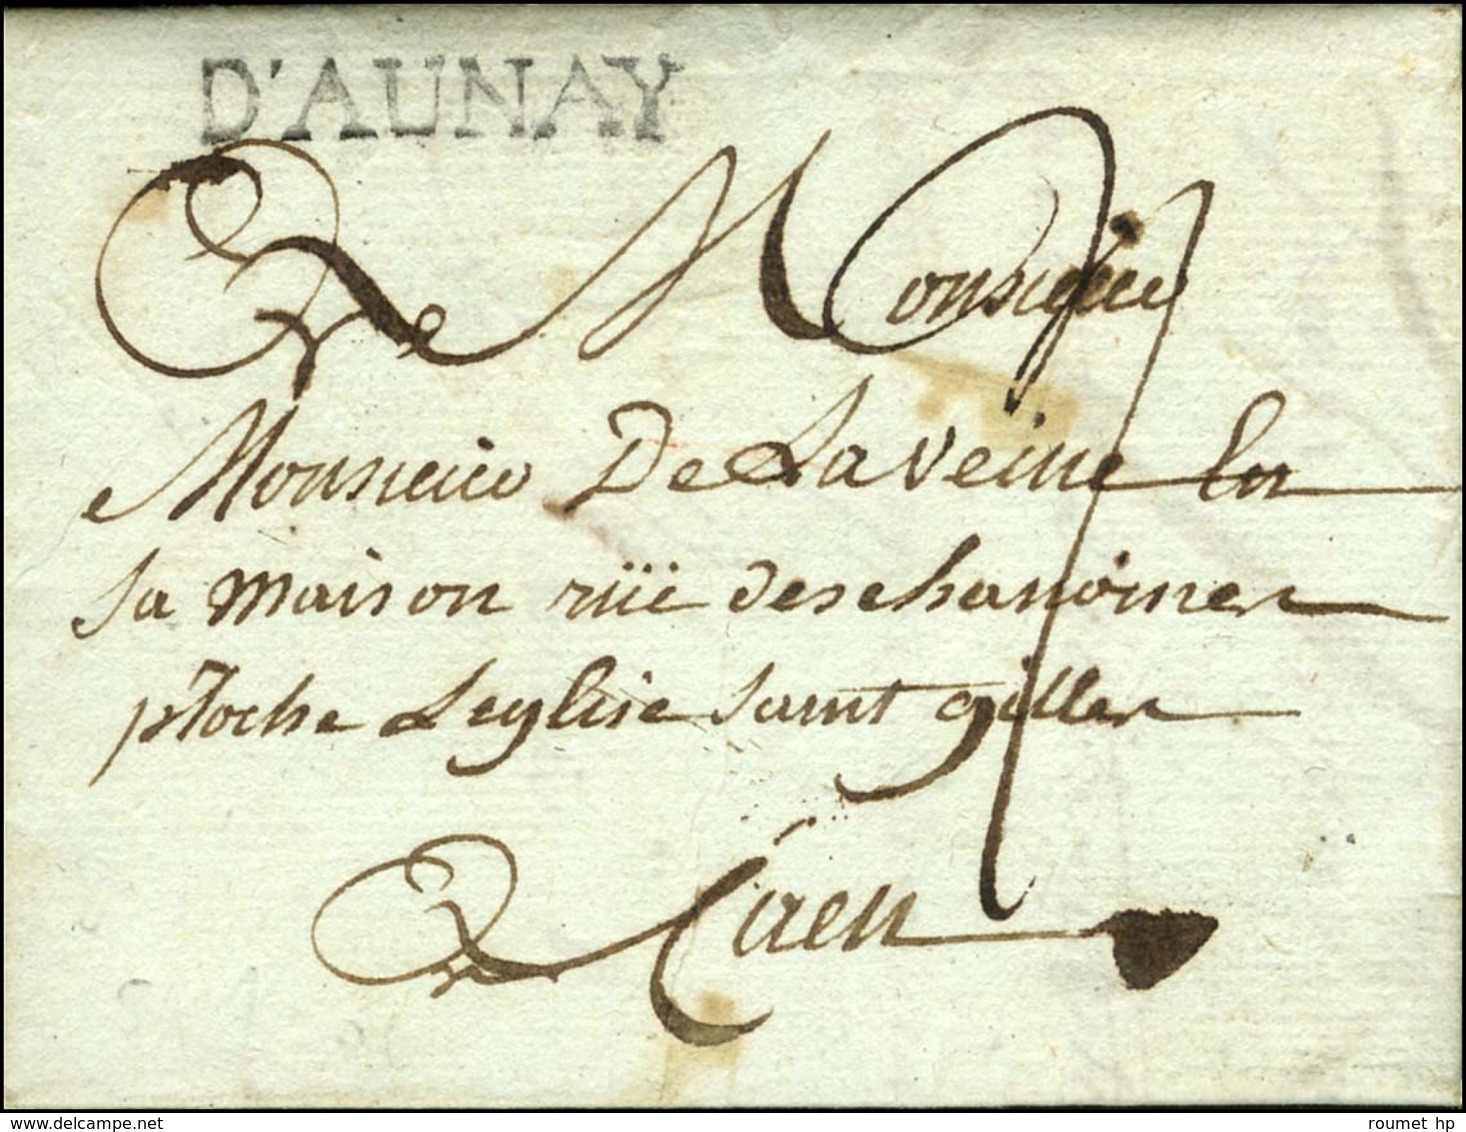 D'AUNAY
Monsieur
Monsieur De La veine En
sa maison rüe des chanoines
proche Leglise saint gilles
a Caen
roumet hp